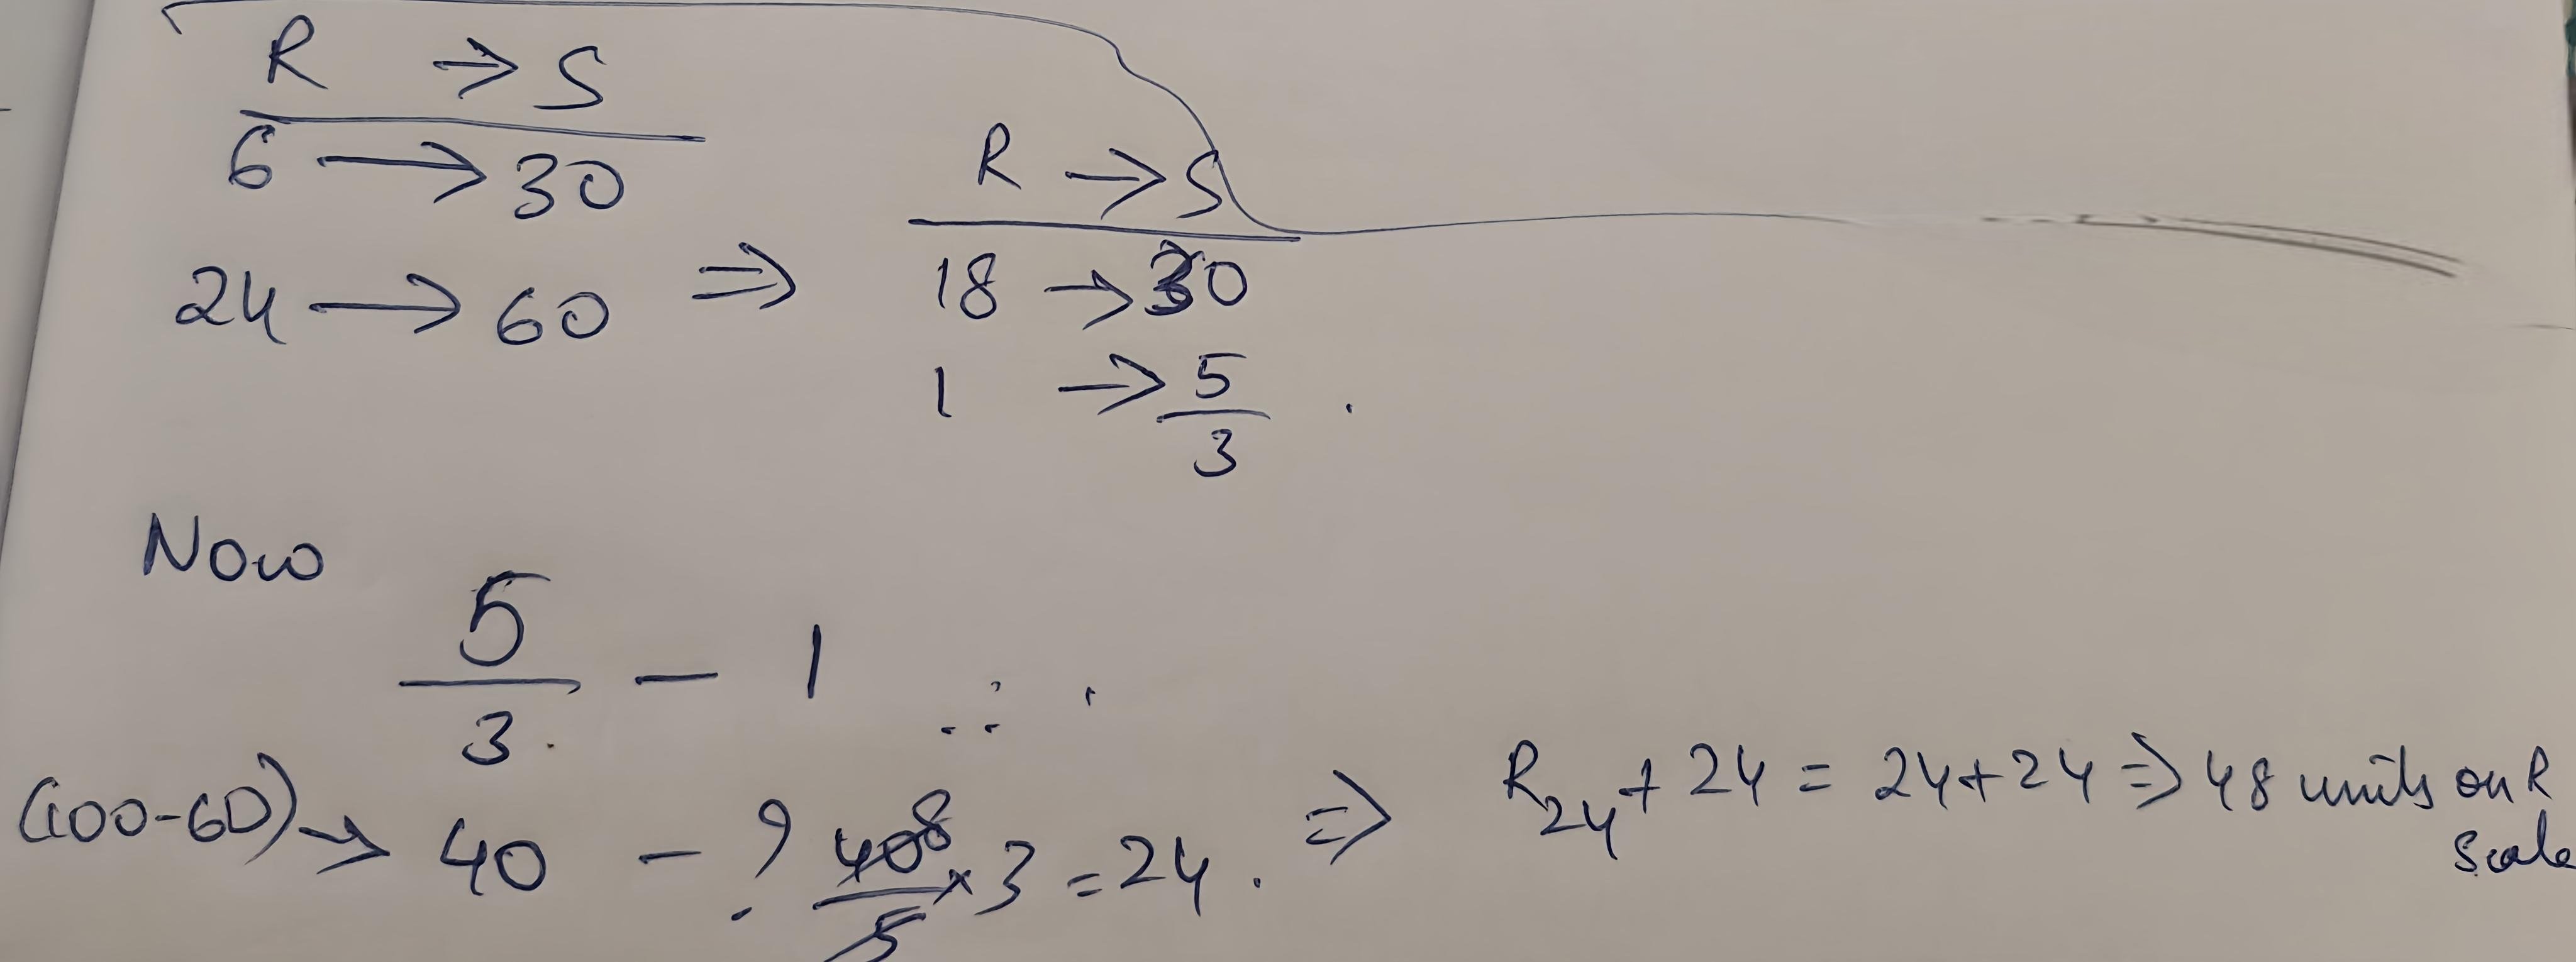 R → S
6 → 30
24 → 60 ⇒
R → S
18 → 30
1 → 5/3 .
Now
5/3 . — 1 . . . .
(100-60) → 40 — ? 40 8/5 × 3 = 24 . ⇒ R24 + 24 = 24+24 ⇒ 48 units on R
Scale